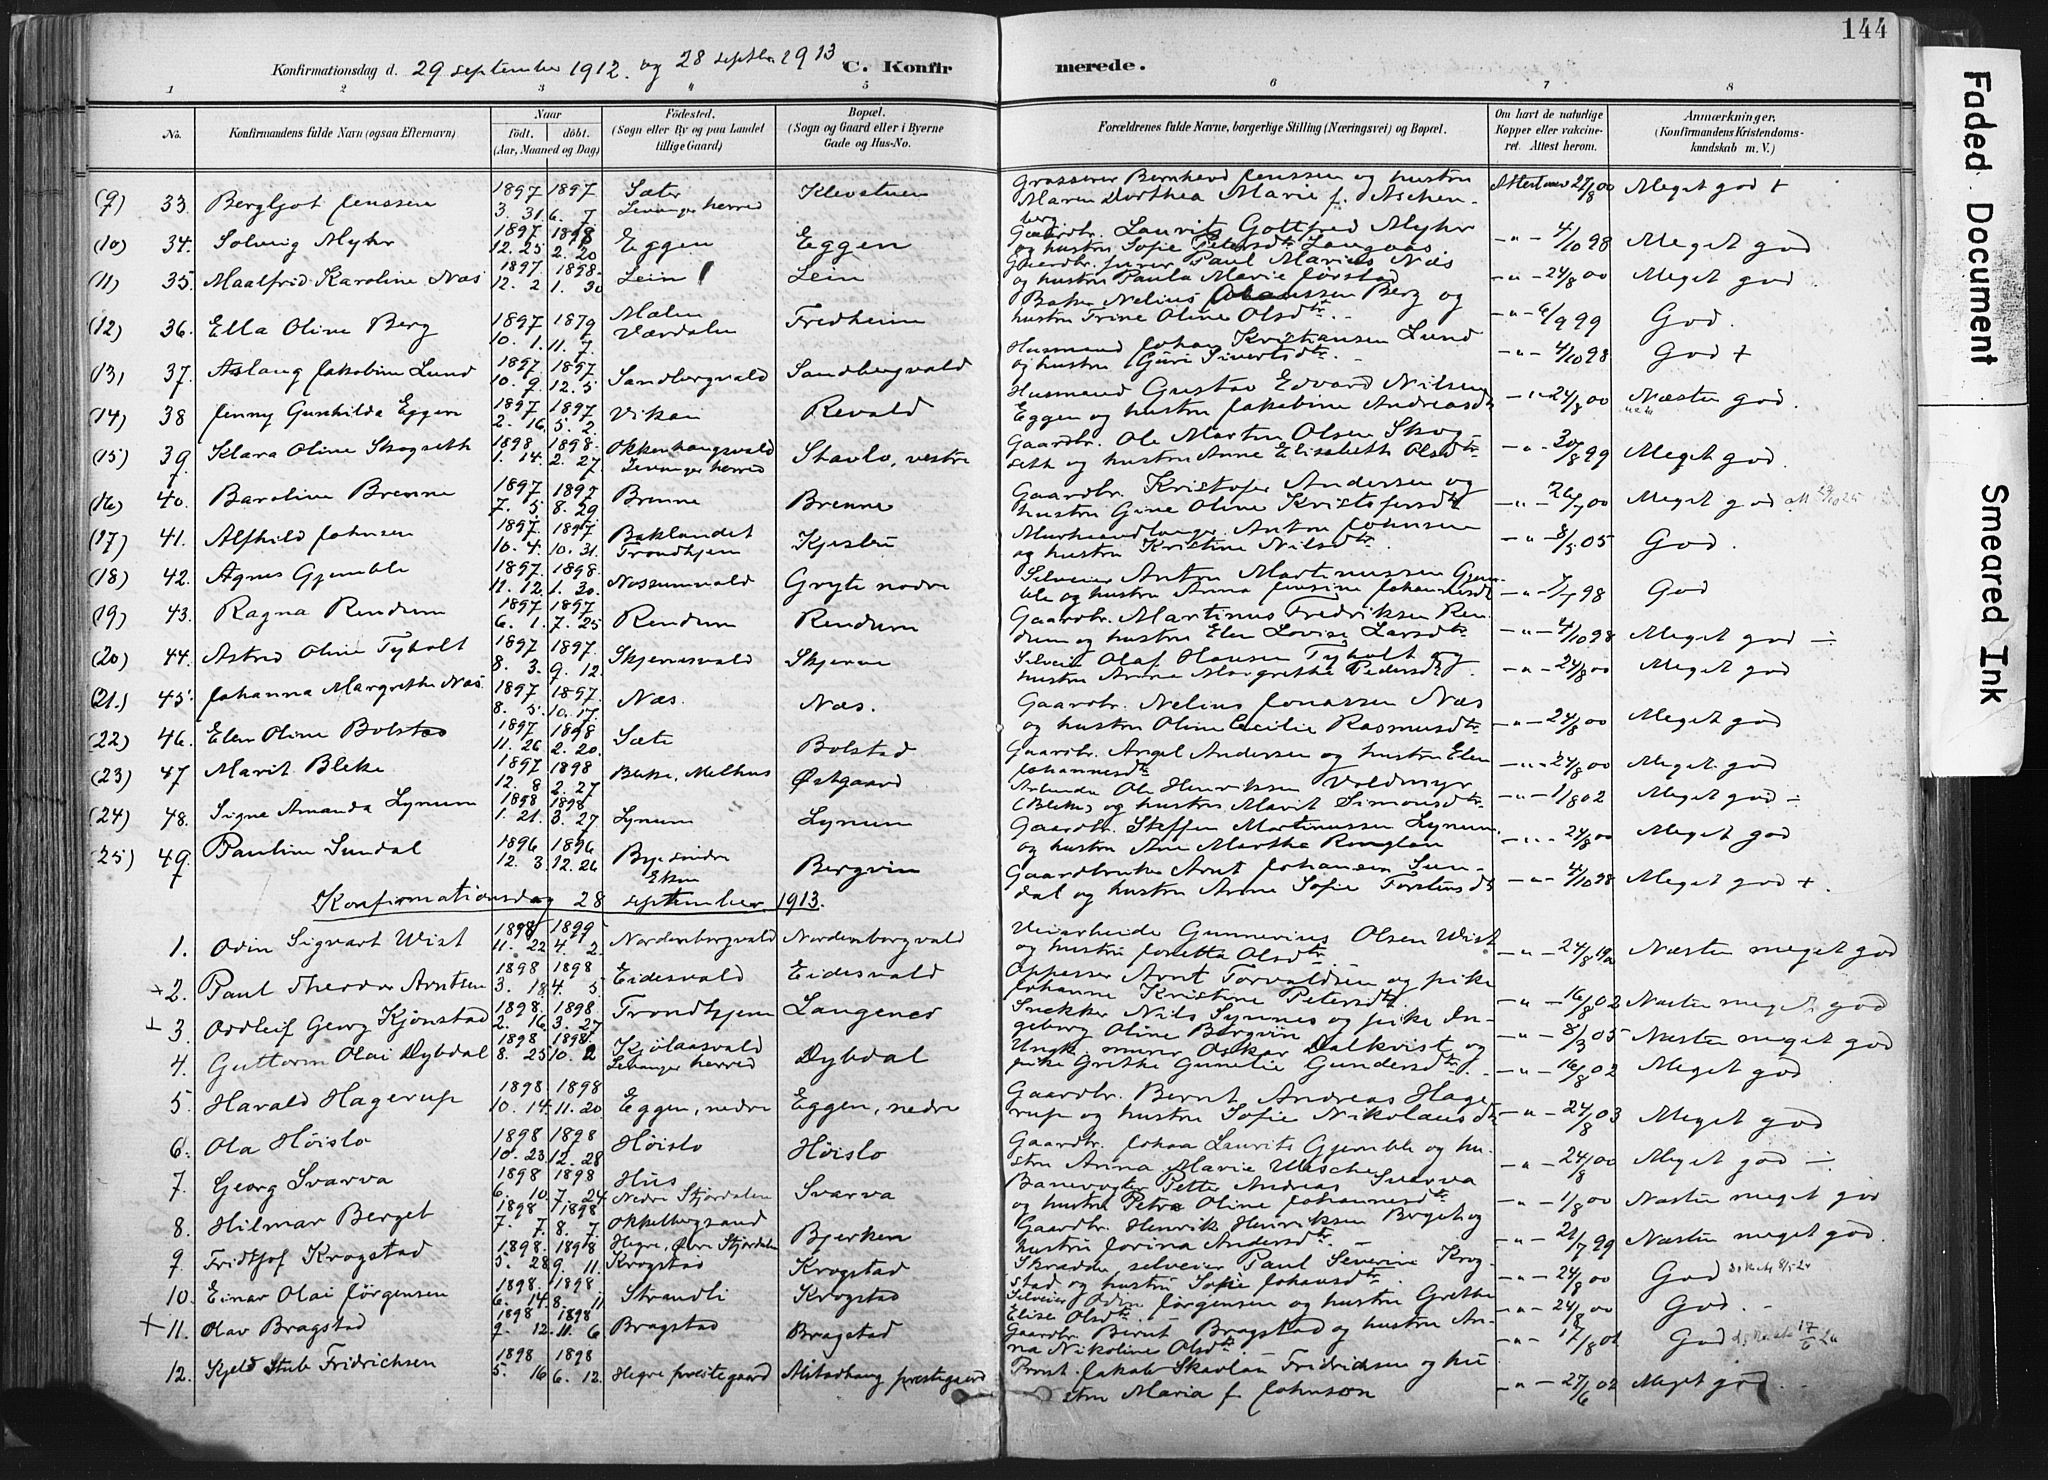 144
Konfirmationsdag d. 29 september 1912. og 28 septbr 1913 C. Konfirmerede.
1 2 3 4 5 6 7 8
No. Konfirmandens fulde Navn (ogsaa Efternavn) Naar født. døbt. (Aar, Maaned og Dag) Fødested. (Sogn eller By og paa Landet tillige Gaard) Bopæl. (Sogn og Gaard eller i Byerne Gade og Hus-No. Forældrenes fulde Navne, borgerlige Stilling (Næringsvei) og Bopæl. Om havt de naturlige Kopper eller vaccineret. Attest herom. Anmærkninger. (Konfirmandens Kristendomskundskab m. V.)
(9) 33. Bergljot Jenssen 1897 3. 31. 1897 6. 7 Sæter Levanger herred Klevstuen Grosserer Bernhard Jenssen og hustru Maren Dorthea Marie f. Aschenberg Attest 27/8 00 Meget god +
(10) 34. Solveig Myhr 1897 12. 25 1898 2. 20 Eggen Eggen Gaardbr. Laurits Gottfred Myhr og hustru Sofie Petersdtr Langaas -"- 4/10 98 Meget god
(11) 35. Maalfrid Karoline Næs 1897 12. 2 1898. 1. 30 Lein Lein Gaardbr. Paul Marius Næs og hustru Paula Marie Jørstad -"- 24/8 00 Meget god
(12) 36. Ella Oline Berg 1897 10. 1. 1879 11. 7. Mælen Værdalen Fredheim Baker Nelius Johanssen Berg og hustru Trine Oline Olsdtr. -"- 6/9 99 God.
(13) 37. Aslaug Jakobine Lund 1897 10. 9. 1897 12. 5 Sandbergvald Sandbergvald Husmand Johan Kristiansen Lund og hustru Guri Sivertsdtr. -"- 4/10 98 God +
(14) 38 Jenny Gunhilda Eggen 1897 2. 16. 1897 5. 2. Vikan Revald Husmand Gustav Edvard Nilsen Eggen og hustru Jakobine Andreasdtr -"- 24/8 00 Næsten god.
(15) 39. Klara Oline Skogseth 1898 1. 14. 1898. 2. 27 Okkenhaugsvald Levanger herred Stavlo, vestre Gaardbr. Ole Martin Olsen Skogseth og hustru Anne Elisabeth Olsdtr -"- 30/8 99 Meget god.
(16) 40. Baroline Brenne 1897 7. 5. 1897 8. 29 Brenne Brenne Gaardbr. Kristofer Andersen og hustru Gine Oline Kristofersdtr -"- 26/7 00 Meget god
(17) 41. Alfhild Johnsen 1897. 10. 4. 1897 10. 31. Baklandet Trondhjem Kjesbu Murhaandlanger Anton Johnsen og hustru Kristine Nilsdtr. -"- 8/5 05 God.
(18) 42. Agnes Gjemble 1897. 11. 12. 1898. 1. 30. Nossumvald Gryte nedre Selveier Anton Martinussen Gjemble og hustru Anna Jensine Johannesdtr -"- 7/7 98 God
(19) 43. Ragna Rendum 1897 6. 1. 1897 7. 25 Rendum Rendum Gaardbr. Martinus Fredriksen Rendum og hustru Elen Lovise Larsdtr -"- 4/10 98 Meget god ÷
(20) 44. Astrid Oline Tyholt 1897 8. 3. 1897. 9. 12. Skjervesvald Skjerve Selveier Olaf Hansen Tyholt og hustru Anna Margrethe Pedersdtr. -"- 24/8 00 Meget god
(21.) 45. Johanna Margrethe Næs 1897 8. 5. 1897. 10. 17. Næs. Næs. Gaardbr. Nelius Jonassen Næs og hustru Oline Cecilie Rasmusdtr -"- 24/8 00 Meget god
(22) 46. Elen Oline Bolstad 1897 11. 26 1898 2. 20. Sæte Bolstad Gaardbr. Angel Andersen og hustru Elen Johannesdtr -"- 24/8 00 Meget god
(23) 47 Marit Bleke 1897 12. 8 1898 2. 27 Bleke, Melhus Østgaard Ole Henriksen Voldmyr (Bleke) og hustru Marit Simonsdtr. -"- 1/8 02 Meget god ÷
(24) 48. Signe Amanda Lynum 1898 1. 21. 1898. 3. 27 Lynum Lynum Gaardbr. Steffen Martinussen Lynum og hustru Ane Martha Ronglan -"- 24/8 00 Meget god
(25) 49. Pauline Sundal 1896 12. 3 1896 12. 26 Bye Ekne Bergvin Gaardbruker Arnt Johansen Sundal og hustru Anne Sofie Torstensdtr -"- 4/10 98 Meget god +.
Konfirmationsdag 28 september 1913.
1. Odin Sigvart Wist 1898 11. 22 1899 4. 2. Nordenborgvald Nordenborgvald Veiarbeide Gunnerius Olsen Wist og hustru Jonetta Olsdtr. -"- 24/8 1900 Næsten meget god
+ 2. Paul Theodor Arntsen 1898 3. 18. 1898 4. 5 Eidesvald Eidesvald Oppasser Arnt Torvaldsen og pike Johanne Kristine Petersdtr. -"- 16/8 02 Næsten meget god
+ 3. Oddleif Georg Kjønstad 1898. 2. 16 1898. 3. 27 Trondhjem Langenes Snekker Nils Synnes og pike Ingeborg Oline Bergvin -"- 8/3 05 Næsten meget god
4. Guttorm Olai Dybdal 1898 8. 25 1898. 10. 2 Kjølaasvald Levanger herred Dybdal Ungk. murer Oskar Dalkvist og pike Grethe Gunelie Gundersdtr. -"- 16/8 02 Meget god
5. Harald Hagerup 1898 10. 14. 1898 11. 20 Eggen, nedre Eggen, nedre Gaardbr. Bernt Andreas Hagerup og hustru Sofie Nikolausdtr -"- 24/8 03 Meget god
6. Ola Høislo 1898 10. 23 1898 12. 28 Høislo Høislo Gaardbr. Johan Laurits Gjemble og hustru Anna Marie Wasche -"- 24/8 00 Meget god ÷
7. Georg Svarva 1898 6. 10. 1898 7. 24 Hus Nedre Stjørdalen Svarva Banevogter Petter Andreas Svarva og hustru Petra Oline Johannesdtr -"- 1/8 00 Næsten meget god
8. Hilmar Berget 1898 7. 7. 1898 8. 7. Okkelbergsand Bjerken Gaardbr. Henrik Henriksen Berget og hustru Jorina Andersdtr -"- 21/7 99 Næsten meget god.
9. Fridtjof Krogstad 1898. 5. 28 1898 9. 11. Hegre, Øvre Stjørdalen Krogstad Krogstad Skrædder, selveier Paul Severin Krogstad og hustru Sofie Johansdtr. -"- 24/8 00 God
10. Einar Olai Jørgensen 1898. 6. 14. 1898 8. 11 Strandli Krogstad Selveier Odin Jørgensen og hustru Grethe Elise Olsdtr. -"- 24/8 00 God. -
+ 11. Olav Bragstad 1898 9. 12. 1898 11. 6 Bragstad Bragstad Gaardbr. Bernt Bragstad og hustru Anna Nikoline Olsdtr. -"- 17/8 01 God
12. Kjeld Stub Fridrichsen 1898 5. 16 1898 6. 12. Hegre prestegaard Alstadhaug prestegaard Provst Jakob Skavlan Fridrichsen og hustru Maria f. Johnson -"- 27/6 02 Meget god.
Faded Document
Smeared Ink